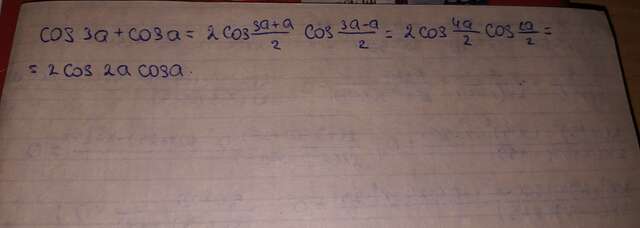 cos 3a + cos a = 2 cos (3a+a)/2 cos (3a-a)/2 = 2 cos 4a/2 cos 2a/2 =
= 2 cos 2a cos a.